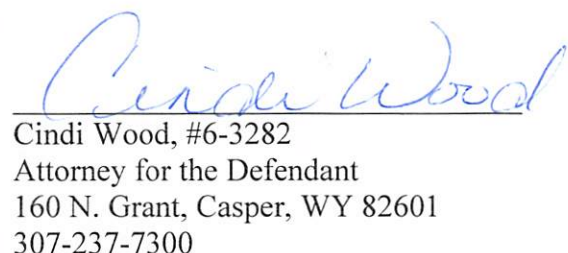 Cindi Wood
Cindi Wood, #6-3282
Attorney for the Defendant
160 N. Grant, Casper, WY 82601
307-237-7300